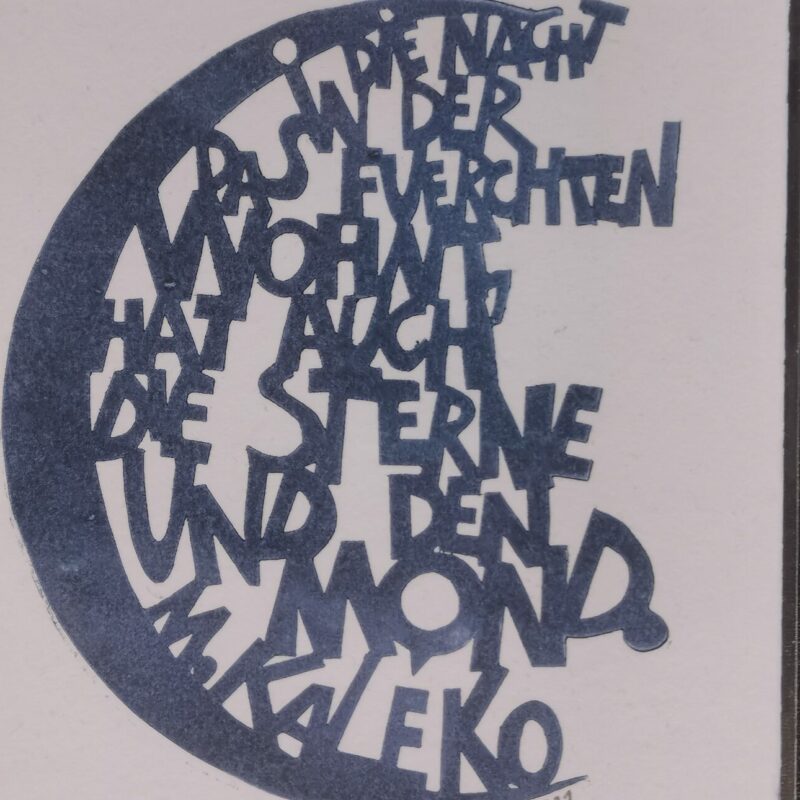 DIE NACHT
iN DER
DAS FUERCHTEN
WOHNT
HAT AUCH
DIE STERNE
UND DEN
MOND.
M. KALEKO